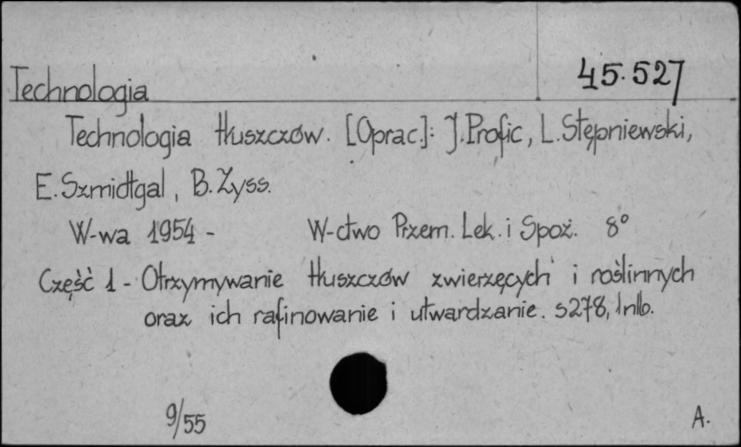 Technologia 45.527
Technologia tłuszczów. [Oprac.]: J. Profic, L. Stępniewski,
E. Szmidtgal, B. Zyss.
W-wa 1954 - W-ctwo Przem. Lek. i Spoż. 8°
Część 1 - Otrzymywanie tłuszczów zwierzęcych i roślinnych
oraz ich rafinowanie i utwardzanie. s278, 1nlb.
9/55 A.